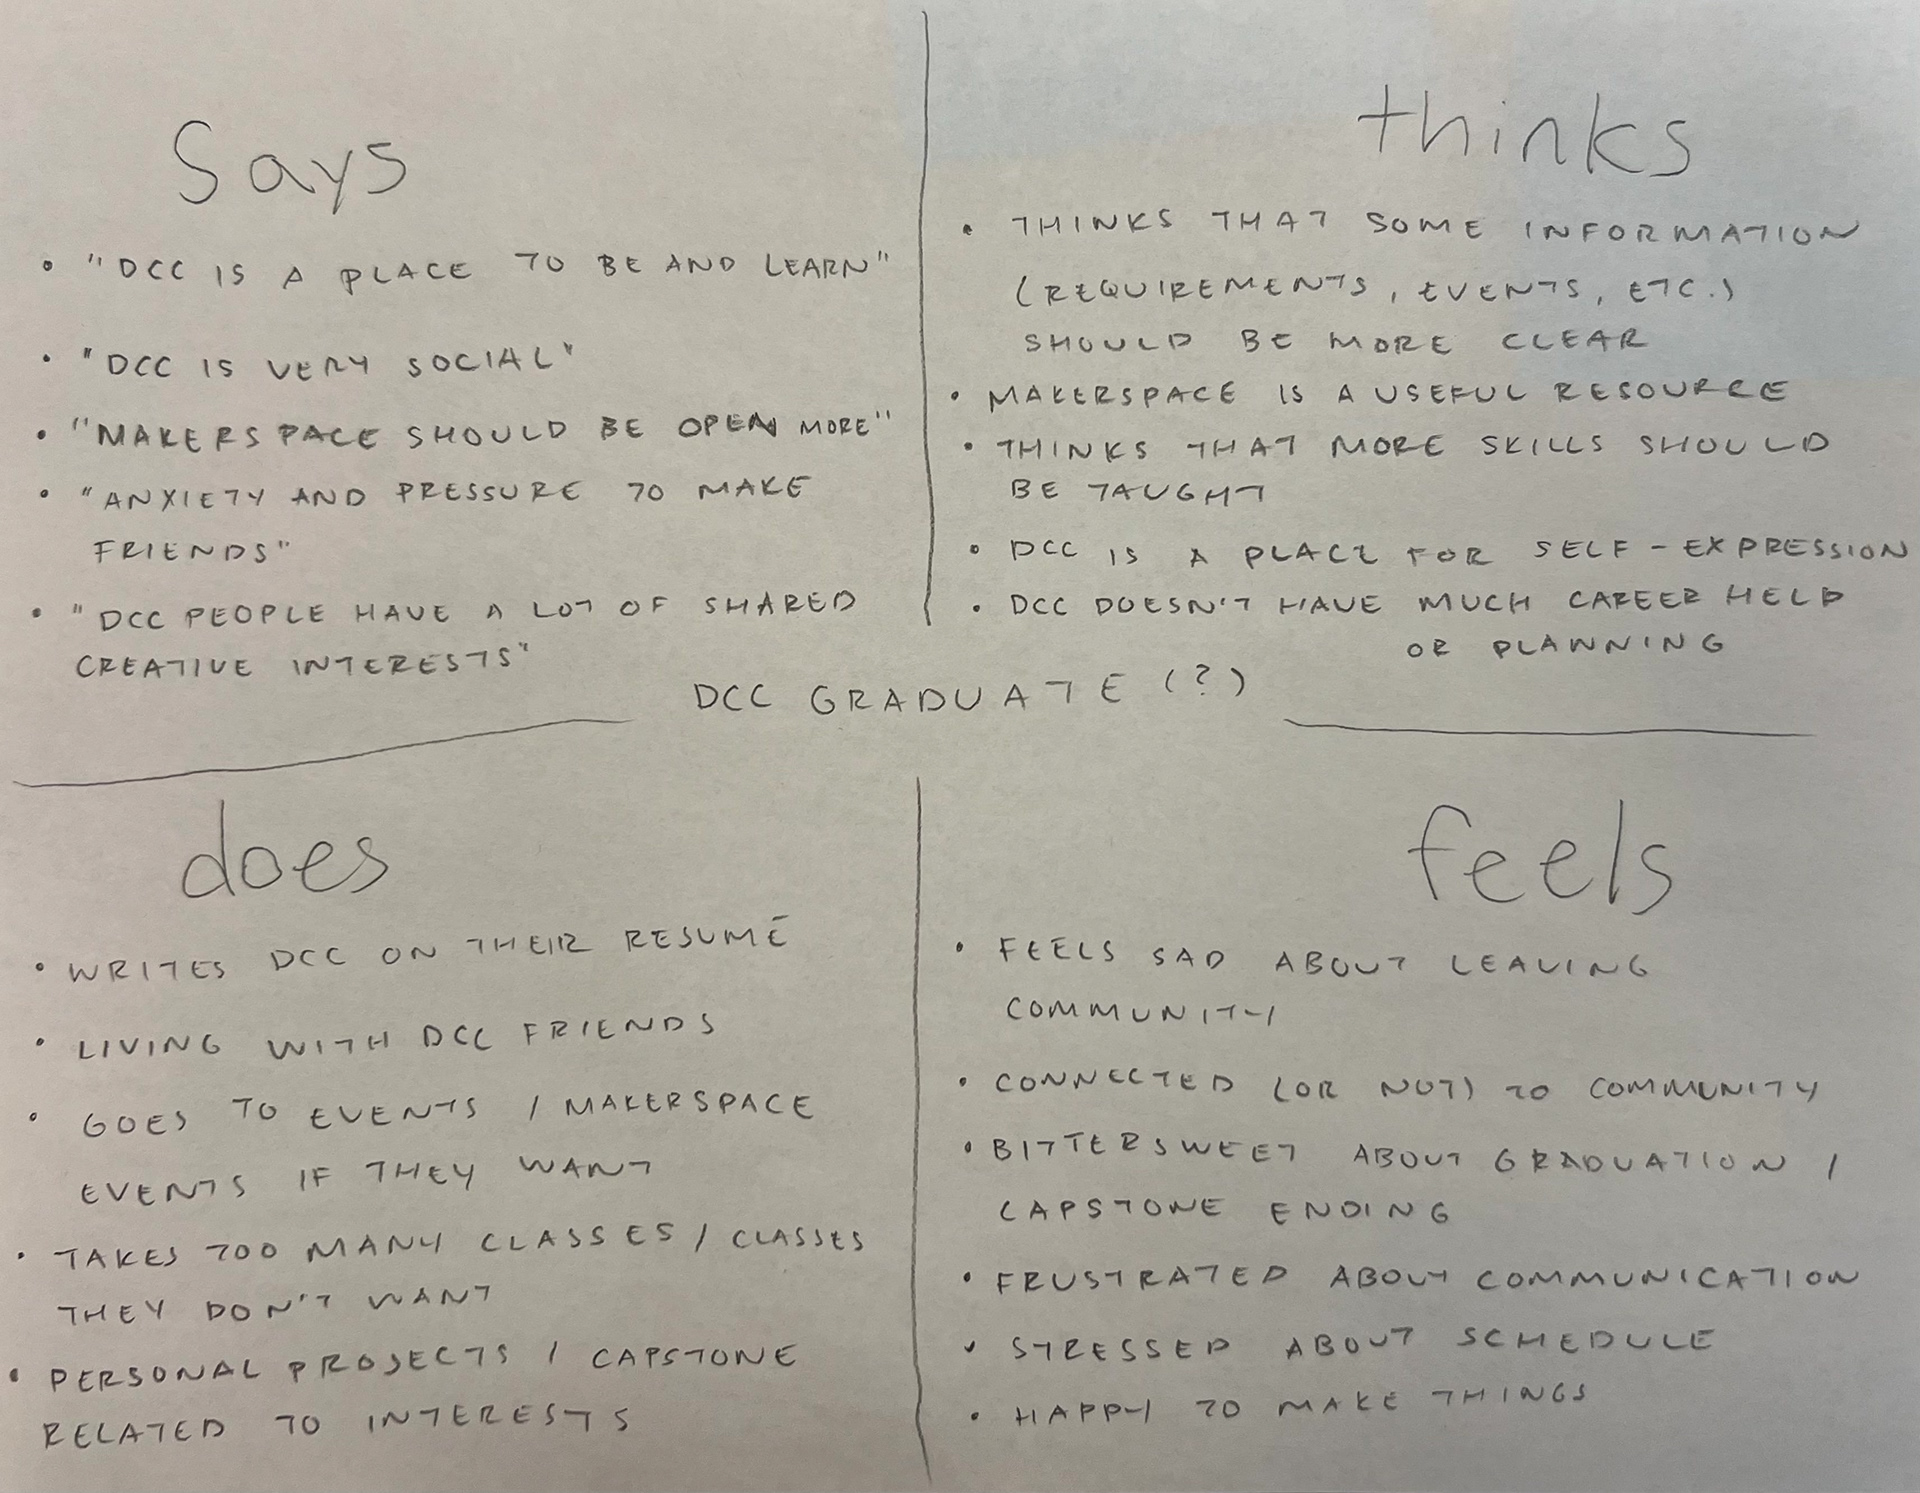 Says
• "DCC IS A PLACE TO BE AND LEARN"
• "DCC IS VERY SOCIAL"
• "MAKERSPACE SHOULD BE OPEN MORE"
• "ANXIETY AND PRESSURE TO MAKE
FRIENDS"
• "DCC PEOPLE HAVE A LOT OF SHARED
CREATIVE INTERESTS"
thinks
• THINKS THAT SOME INFORMATION
(REQUIREMENTS, EVENTS, ETC.)
SHOULD BE MORE CLEAR
• MAKERSPACE IS A USEFUL RESOURCE
• THINKS THAT MORE SKILLS SHOULD
BE TAUGHT
• DCC IS A PLACE FOR SELF-EXPRESSION
• DCC DOESN'T HAVE MUCH CAREER HELP
OR PLANNING
DCC GRADUATE (?)
does
• WRITES DCC ON THEIR RESUMÉ
• LIVING WITH DCC FRIENDS
• GOES TO EVENTS / MAKERSPACE
EVENTS IF THEY WANT
• TAKES TOO MANY CLASSES / CLASSES
THEY DON'T WANT
• PERSONAL PROJECTS / CAPSTONE
RELATED TO INTERESTS
feels
• FEELS SAD ABOUT LEAVING
COMMUNITY
• CONNECTED (OR NOT) TO COMMUNITY
• BITTERSWEET ABOUT GRADUATION /
CAPSTONE ENDING
• FRUSTRATED ABOUT COMMUNICATION
• STRESSED ABOUT SCHEDULE
• HAPPY TO MAKE THINGS